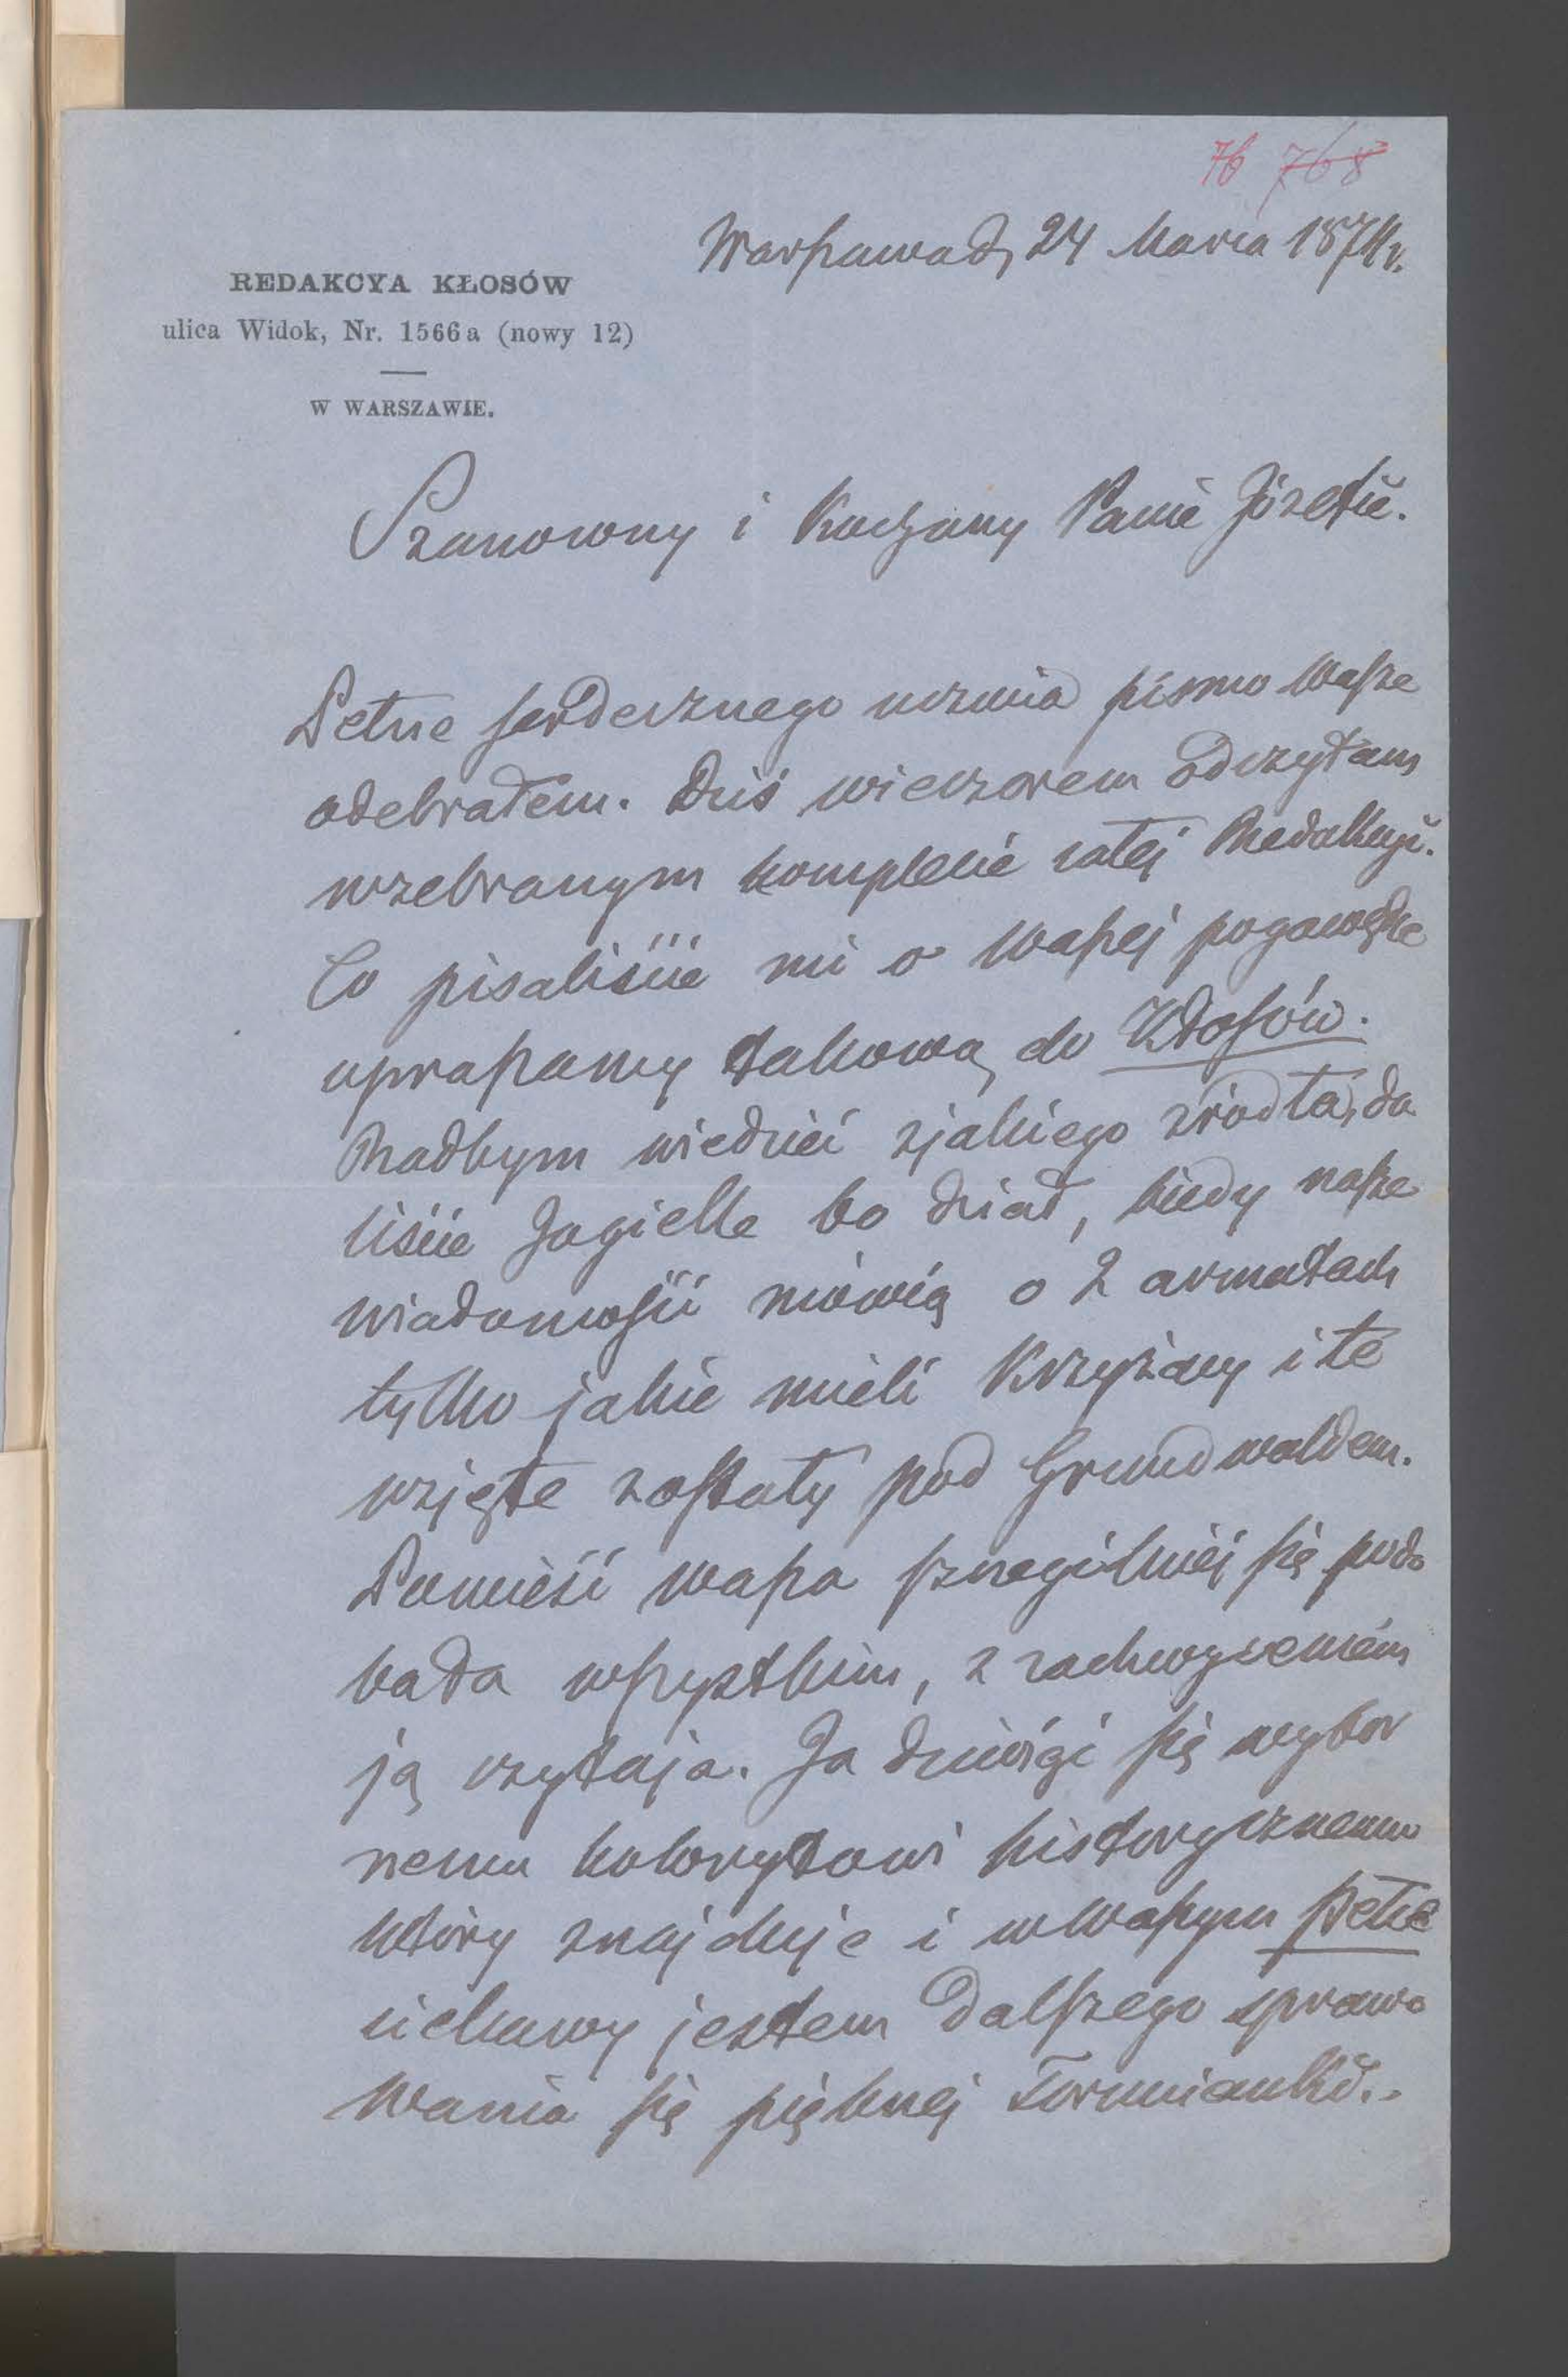 76 768
Warszawa d, 24 Marca 1874 r.
REDAKCYA KŁOSÓW
ulica Widok, Nr. 1566 a (nowy 12)
W WARSZAWIE.
Szanowny i Kochany Panie Józefie.
Pełne serdecznego uczucia pismo Wasze
odebrałem. Dziś wieczorem odczytam
w zebranym komplecie całej Redakcyi.
Co pisaliście mi o waszej pogawędce
upraszamy takową do Kłosów.
Radbym wiedzieć z jakiego zródła, da
liście Jagielle bo dział, kiedy nasze
wiadomości mówią o 2 armatach
tylko jakie mieli Krzyżacy i te
wzięte zostały pod Grundwaldem.
Powieść wasza szczególniej się podo
bała wszystkim, z zachwyceniem
ją czytają. Ja dziwię się wybor
nemu kolorytowi historycznemu
który znajduję i w waszym
ciekawy jestem dalszego sprawo
wania się pięknej Torunianki..